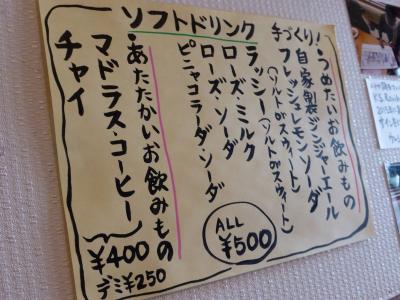 ソフトドリンク
手づくり!
・つめたいお飲みもの
自家製ジンジャーエール
フレッシュレモンソーダ
(ソルトorスウィート)
ラッシー(ソルトorスウィート)
ローズ・ミルク
ローズ・ソーダ
ピニャコラーダ・ソーダ
ALL
¥500
・あたたかいお飲みもの
マドラス・コーヒー
チャイ
¥400
デミ¥250